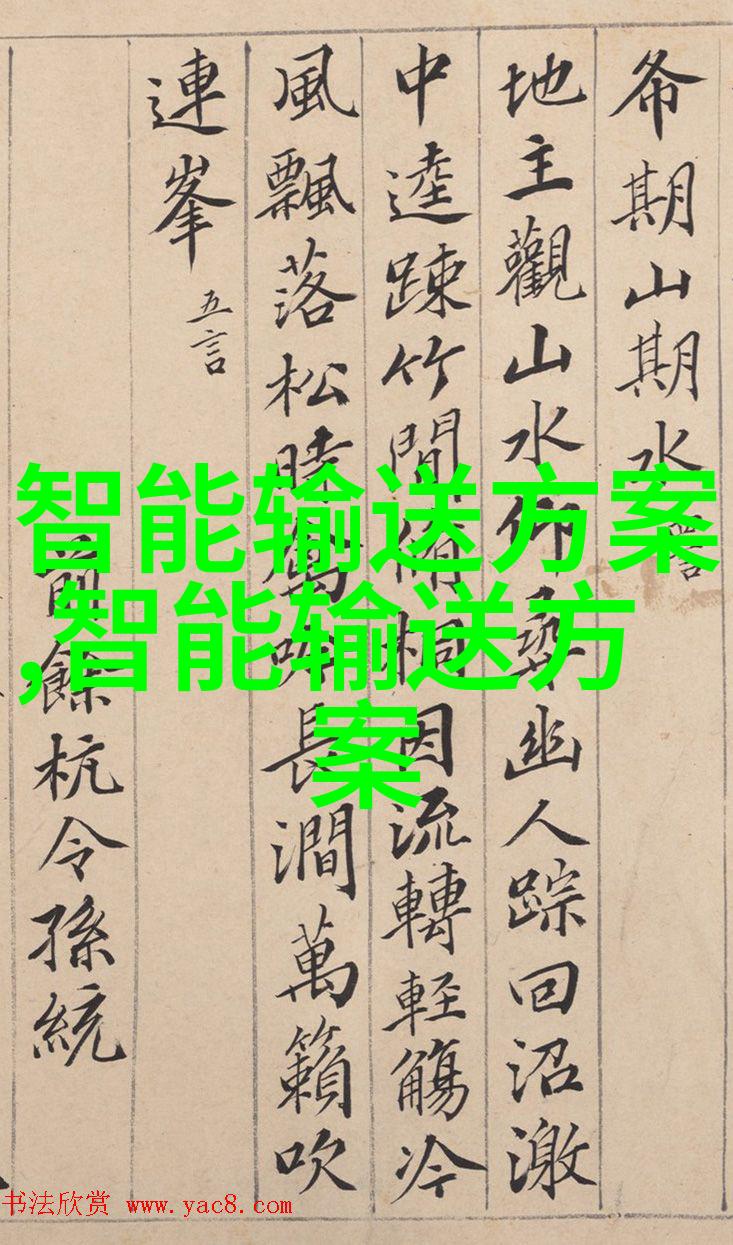 希期山期水 言
地主觀山水仰尋幽人蹤回沼激
中逵踈竹間脩桐因流轉輕觴冷
風飄落松時禽吟長澗萬籟吹
連峯 五言
前餘杭令孫統
智能输送方案
,智能输送方
案
书法欣赏 www.yac8.com